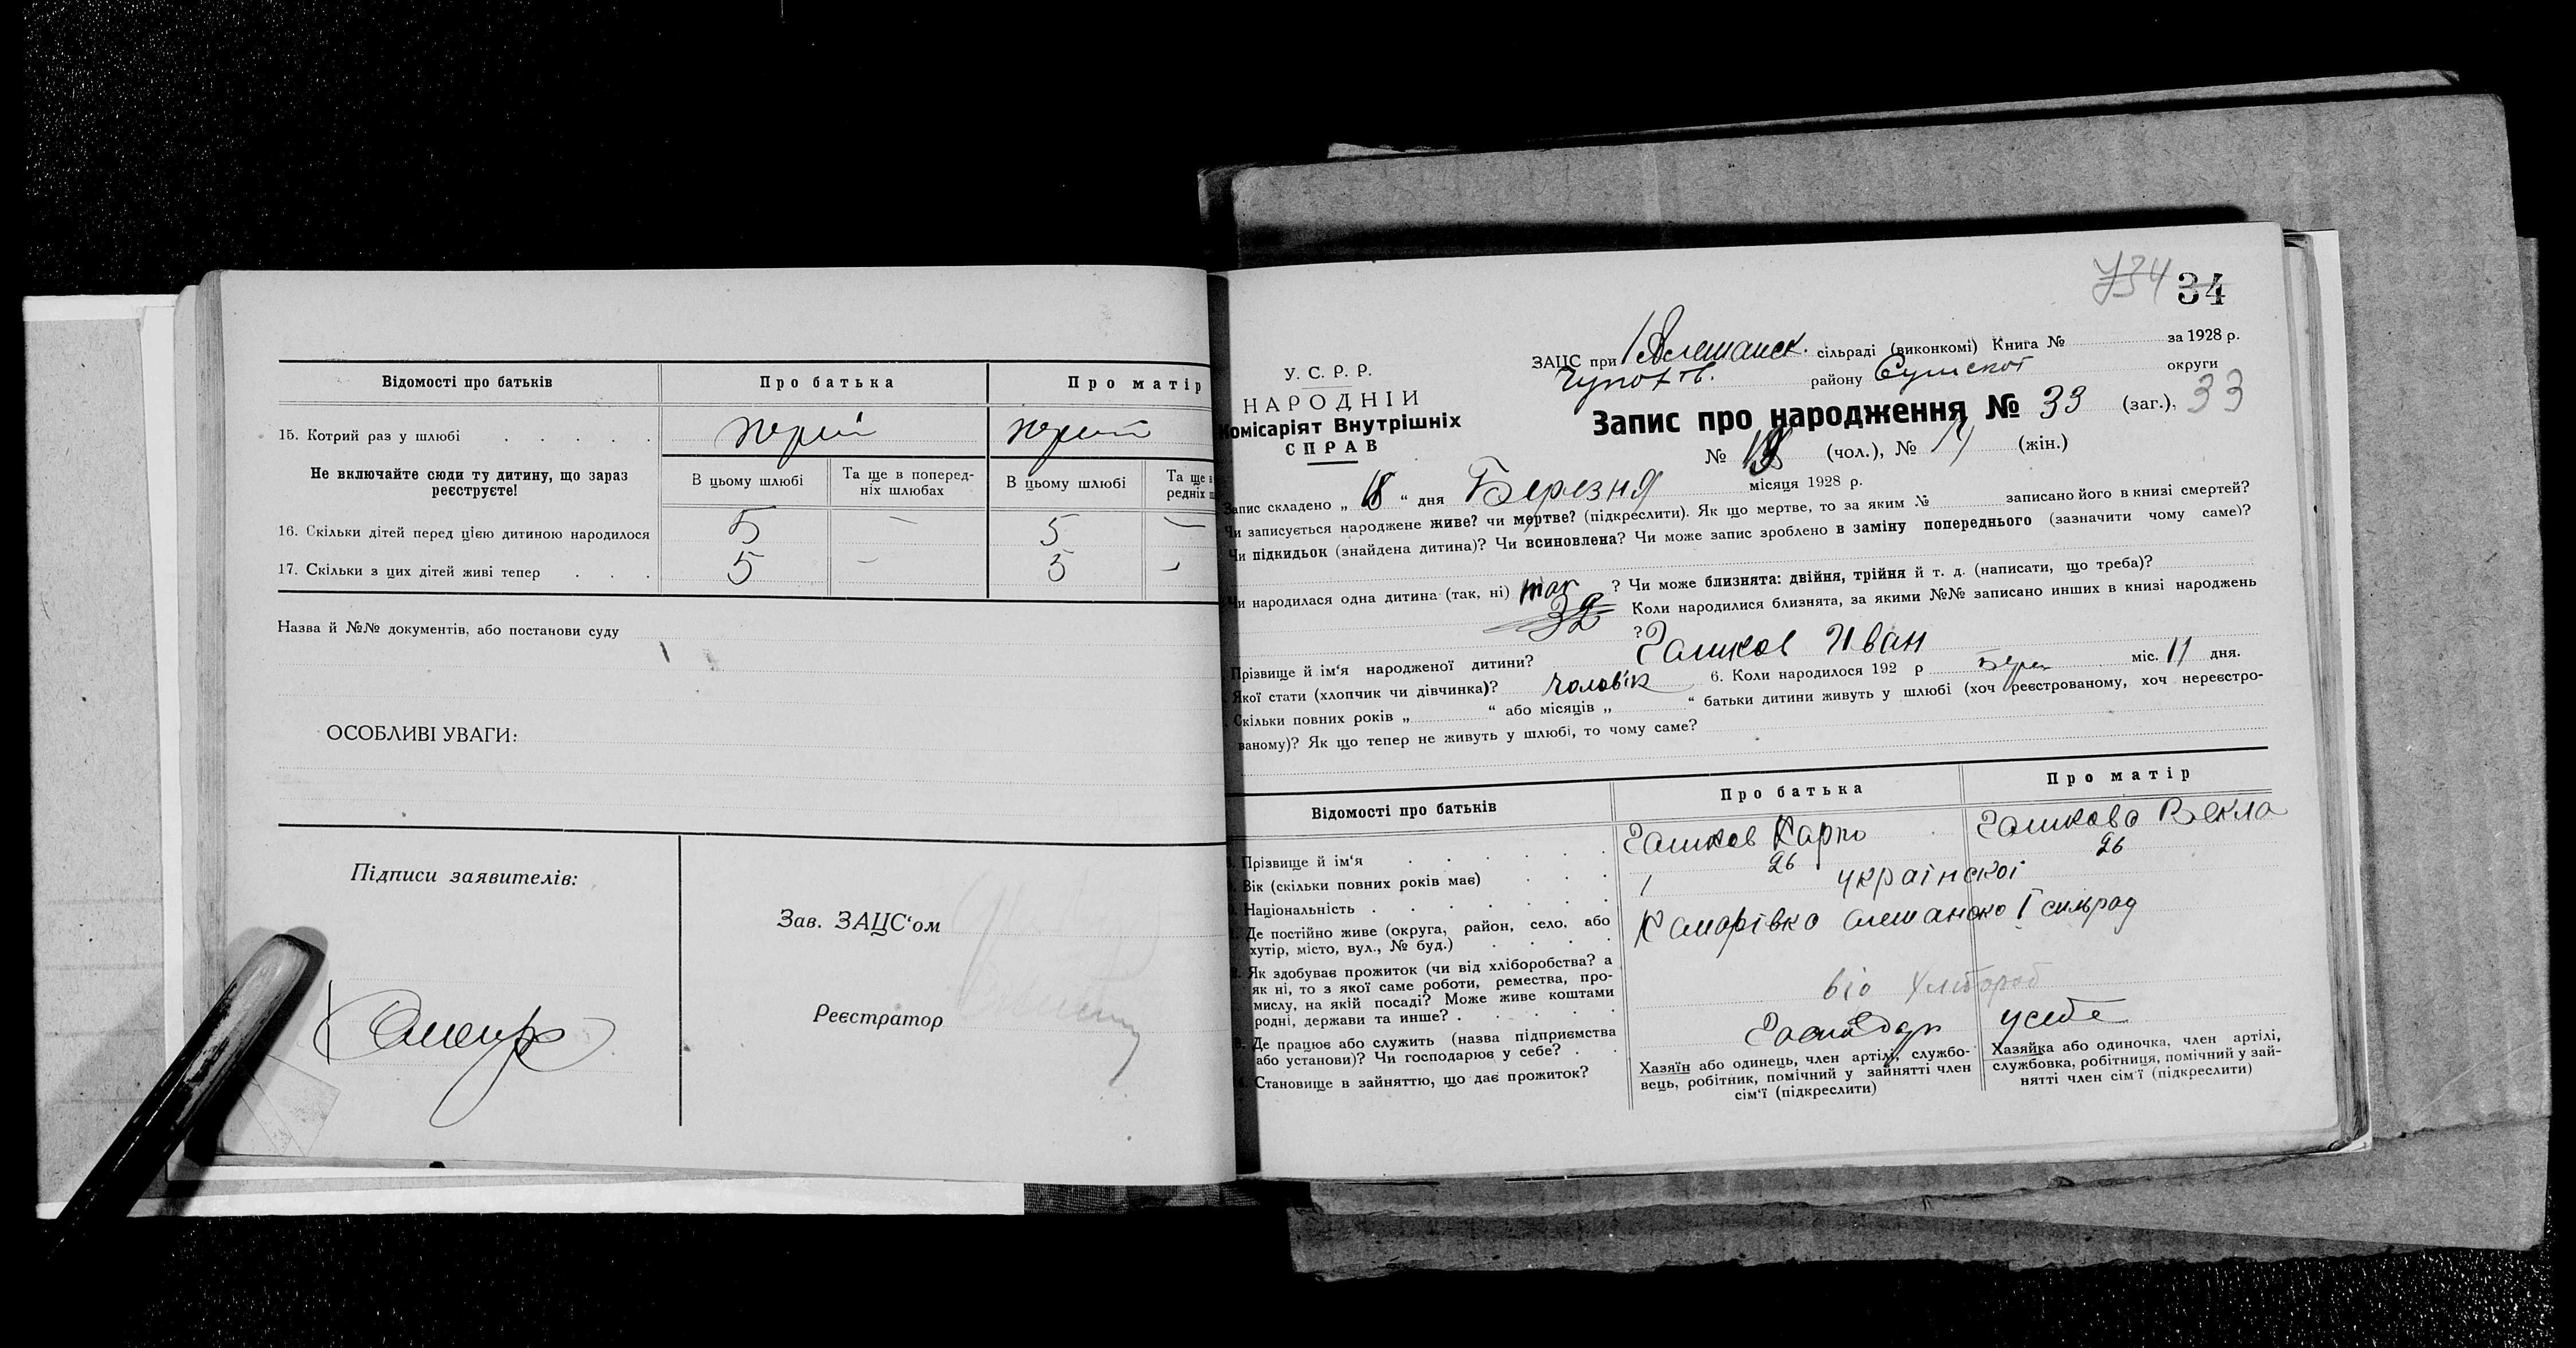 Відомості про батьків Про батька Про матір
15. Котрий раз у шлюбі . . . . . перий перий
Не включайте сюди ту дитину, що зараз реєструєте!
В цьому шлюбі Та ще в поперед-ніх шлюбах В цьому шлюбі Та ще в редніх ш
16. Скільки дітей перед цією дитиною народилося 5 — 5 —
17. Скільки з цих дітей живі тепер . . . 5 — 5 —
Назва й №№ документів, або постанови суду
ОСОБЛИВІ УВАГИ:
Підписи заявителів:
Зав. ЗАЦС'ом
Реєстратор
734 34
ЗАЦС при сільраді (виконкомі) Книга № за 1928 р.
району Сумскої округи
У. С. Р. Р.
НАРОДНІЙ
Комісаріят Внутрішніх
СПРАВ
Запис про народження № 33 (заг.), 33
№ (чол.), № 14 (жін.)
Запис складено „ 18 " дня Березня місяця 1928 р.
Чи записується народжене живе? чи мертве? (підкреслити). Як що мертве, то за яким № записано його в книзі смертей?
Чи підкидьок (знайдена дитина)? Чи всиновлена? Чи може запис зроблено в заміну попереднього (зазначити чому саме)?
Чи народилася одна дитина (так, ні) так ? Чи може близнята: двійня, трійня й т. д. (написати, що треба)?
32 Коли народилися близнята, за якими №№ записано инших в книзі народжень
?
Прізвище й ім'я народженої дитини? Гашков Иван
Якої стати (хлопчик чи дівчинка)? чоловік 6. Коли народилося 192 р Берез міс. 11 дня.
Скільки повних років „ " або місяців „ " батьки дитини живуть у шлюбі (хоч реєстрованому, хоч нереєстро-
ваному)? Як що тепер не живуть у шлюбі, то чому саме?
Відомості про батьків Про батька Про матір
Прізвище й ім'я . . . . . Гашков Карпо Гашкова Векла
Вік (скільки повних років має) . . . 26 26
Національність . . . . . . української
Де постійно живе (округа, район, село, або
хутір, місто, вул., № буд.) . . . .
Як здобуває прожиток (чи від хліборобства? а
як ні, то з якої саме роботи, ремества, про-
мислу, на якій посаді? Може живе коштами
родні, держави та инше? . . . . . від хлібороб
Де працює або служить (назва підприємства
або установи)? Чи господарює у себе? . . Господар усебе
Становище в зайняттю, що дає прожиток?
Хазяїн або одинець, член артілі, службо-
вець, робітник, помічний у зайнятті член
сім'ї (підкреслити)
Хазяйка або одиночка, член артілі,
службовка, робітниця, помічний у зай-
нятті член сім'ї (підкреслити)